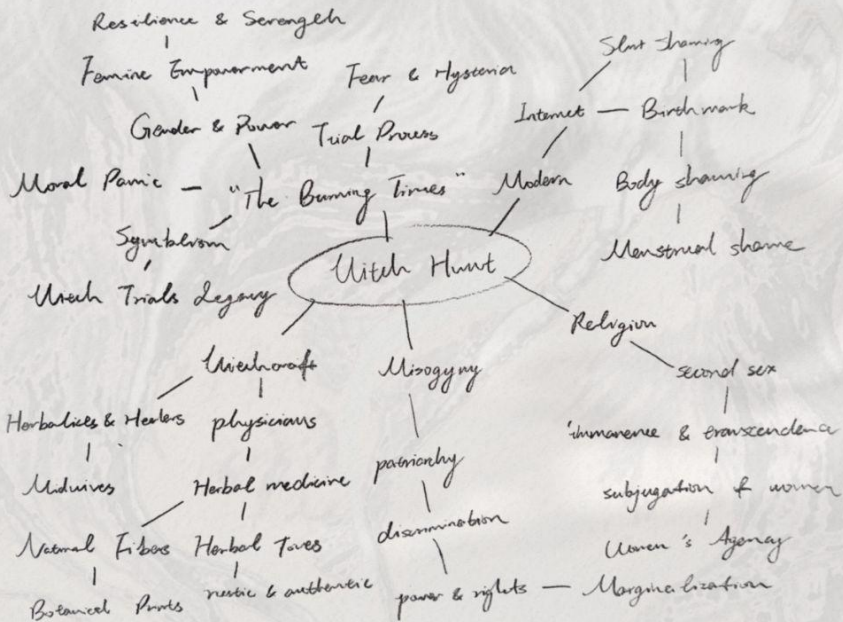 Resilience & Strength
Femine Empowerment
Gender & Power
Moral Panic
"The Burning Times"
Symbolism
Witch Trials Legacy
Fear & Hysteria
Trial Process
Slut shaming
Internet
Birthmark
Modern
Body shaming
Menstrual shame
Witch Hunt
Religion
second sex
immanence & transcendence
subjugation of women
Women's Agency
Marginalization
Witchcraft
Herbalists & Healers
Midwives
physicians
Herbal medicine
Natural Fibers
Botanical Prints
Herbal Tones
rustic & authentic
Misogyny
patriarchy
discrimination
power & rights